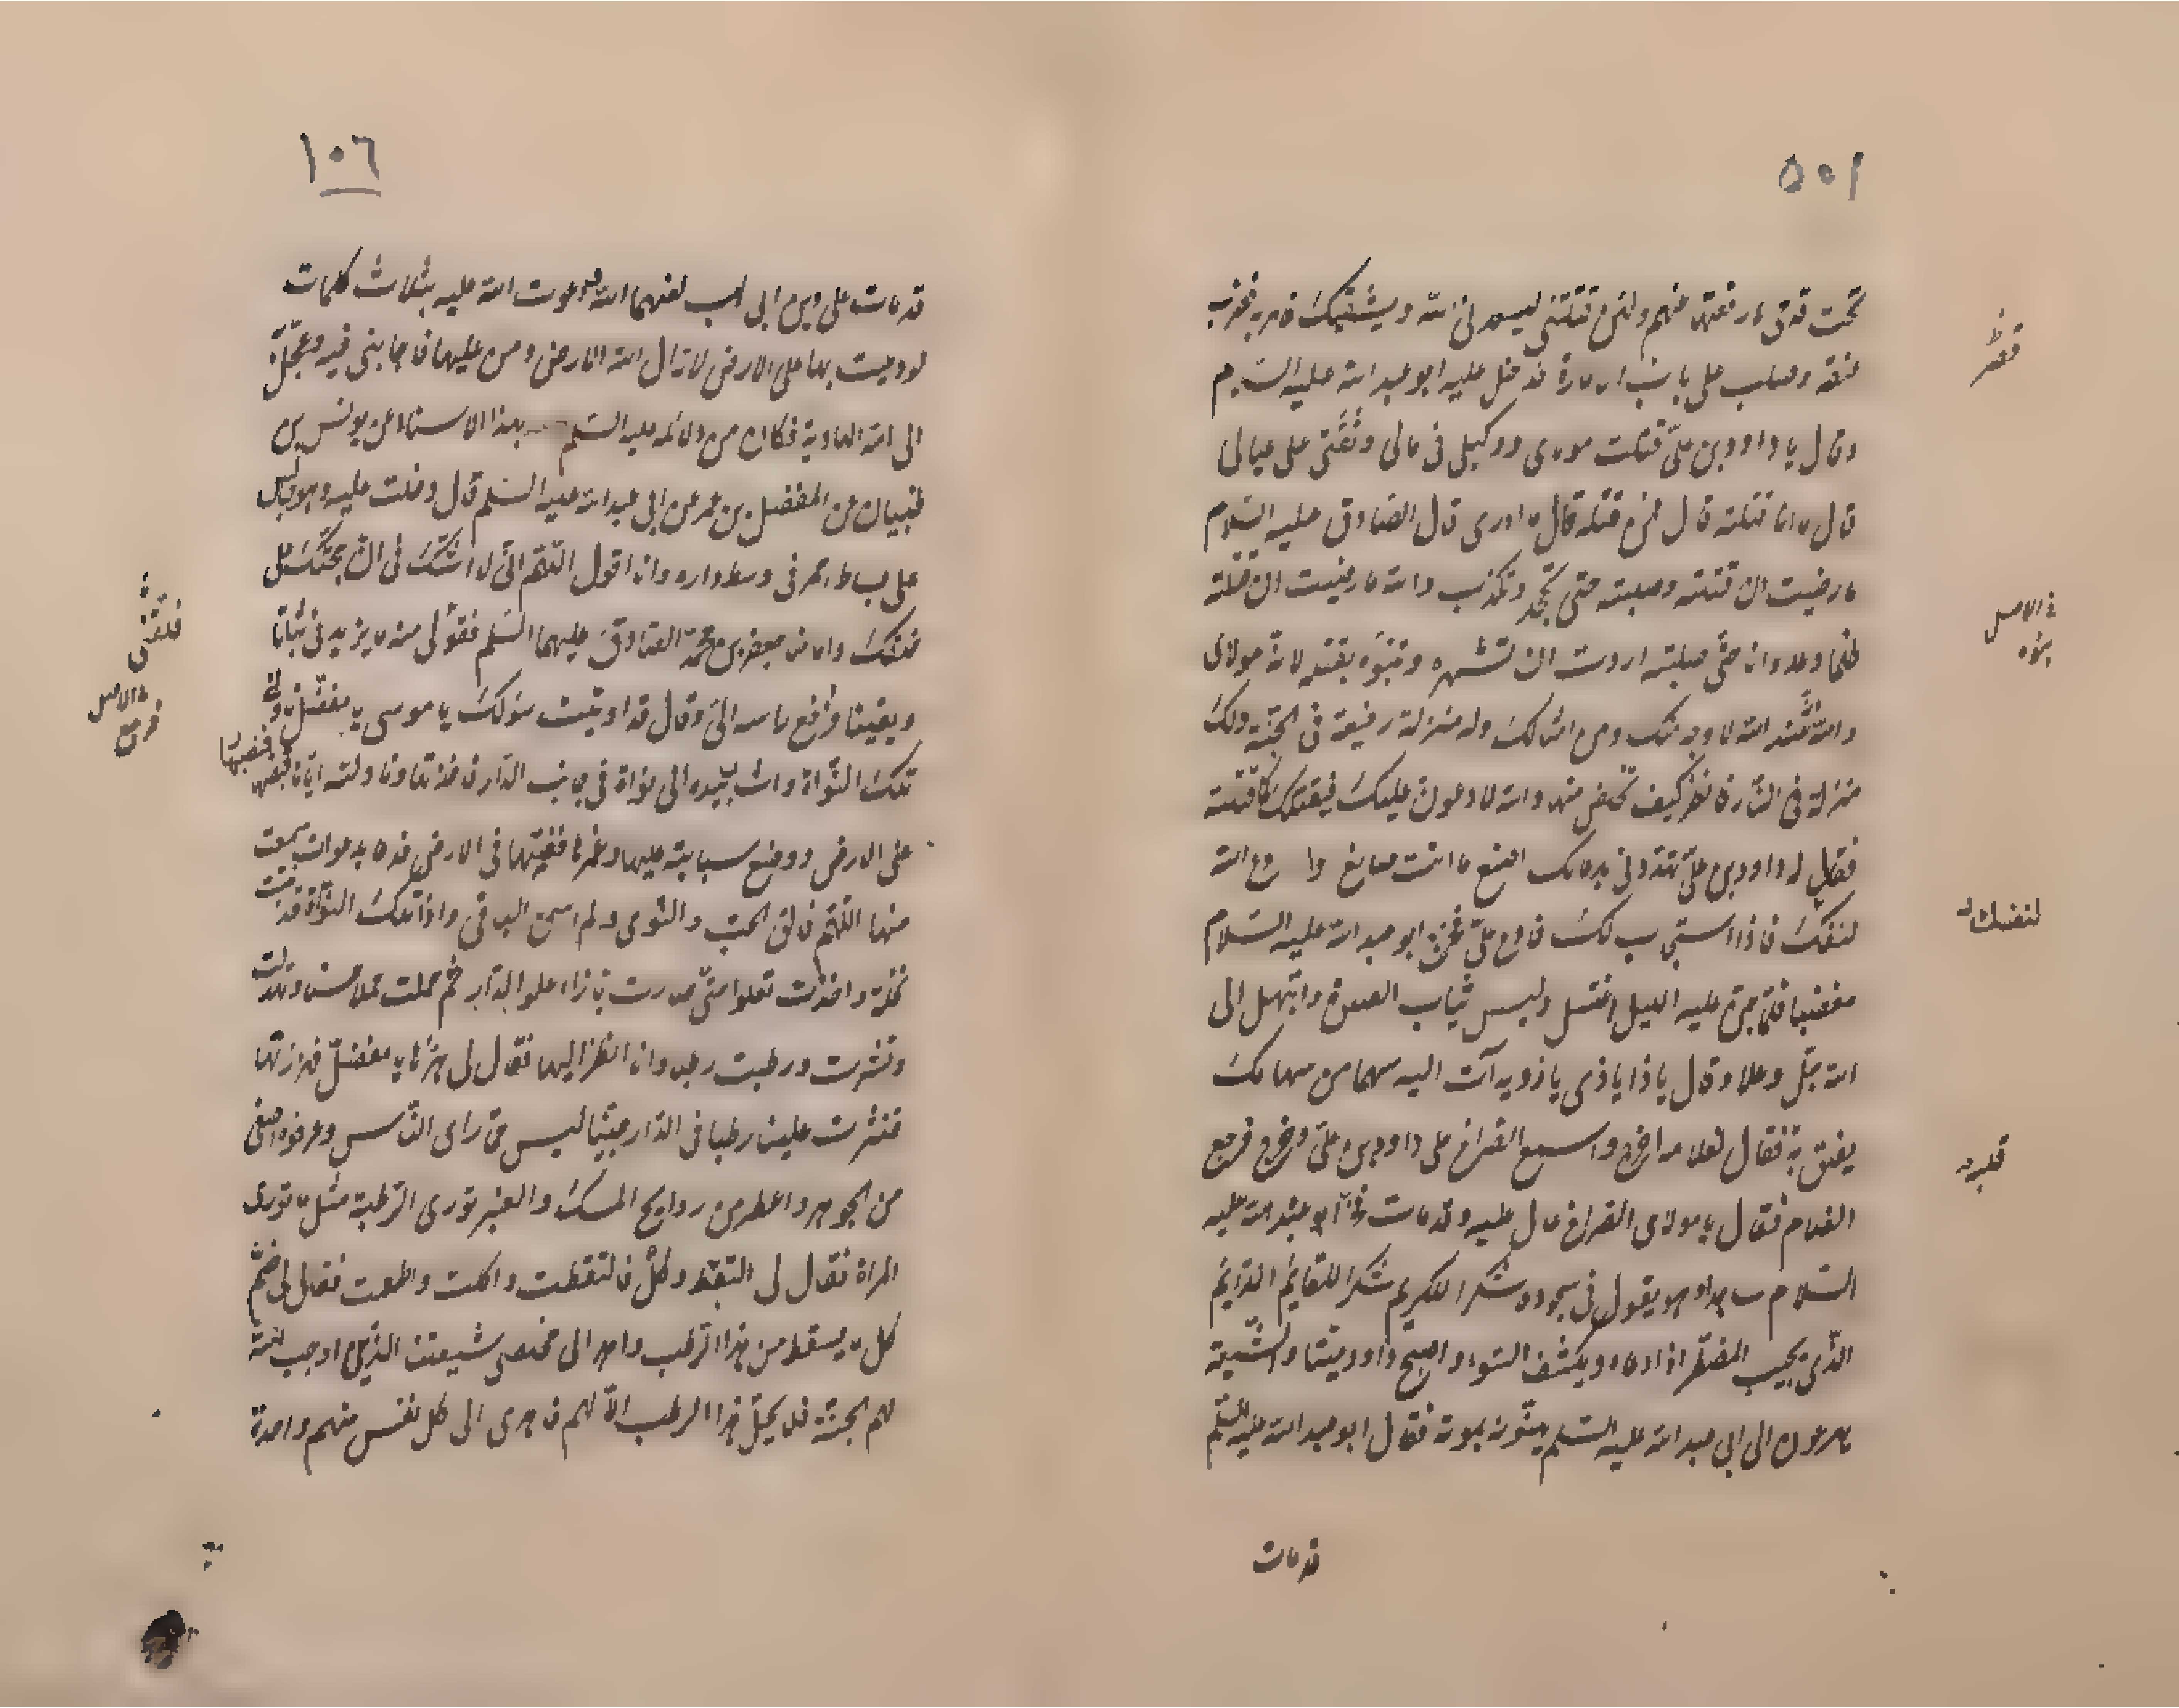 ١٠٥
تحت قدمی ما رفعتهما عنهم ولئن قتلتنی لیسعدنی الله ویشقیک فامر به فضرب
عنقه وصلب علی باب الامارة فدخل علیه ابو عبد الله علیه السلام
وقال یا داود بن علی قتلت مولای ووکیلی فی مالی وثقتی علی عیالی
قال ما انا قتلته قال فمن قتله قال ما ادری قال الصادق علیه السلام
ما رضیت ان قتلته وصلبته حتی تجحد وتکذب والله ما رضیت ان قتلته
ظلما وعدوانا حتی صلبته اردت ان تشهره وتنوه بقتله لانه مولای
والله انه عند الله لاوجه منک ومن امثالک وله منزلة رفیعة فی الجنة ولک
منزلة فی النار فانظر کیف تخلص منها والله لادعون علیک فیقتلک کما قتلته
فقال له داود بن علی تهددنی بدعائک اصنع ما انت صانع وادع الله
لنفسک فاذا استجاب لک فادع علی فخرج ابو عبد الله علیه السلام
مغضبا فلما جن علیه اللیل اغتسل ولبس ثیاب الصلوة وابتهل الی
الله جل وعلا وقال یا ذا یا ذی یا ذویه آت الیه سهما من سهامک
یفلق به فقال لغلامه اخرج واسمع الصراخ علی داود بن علی فخرج فرجع
الغلام فقال یا مولای الصراخ عال علیه وقد مات فخر ابو عبد الله علیه
السلام ساجدا وهو یقول فی سجوده شکرا للکریم شکرا للقائم الدائم
الذی یجیب المضطر اذا دعاه ویکشف السوء واصبح داود میتا والشیعة
یهرعون الی ابی عبد الله علیه السلم یهنونه بموته فقال ابو عبد الله علیه السلم
قد مات
فی الاصل
لنفسک
قلبه
١٠٦
قد مات علی دین ابی لهب لعنهما الله ولقد دعوت الله علیه بثلاث کلمات
لو دعیت بها علی الارض لازال الله الارض ومن علیها فاجابنی فیه وعجل به
الی امه الهاویة فکان من دلائله علیه السلم بهذا الاسناد عن یونس بن
ظبیان عن المفضل بن عمر عن ابی عبد الله علیه السلم قال دخلت علیه وهو جالس
علی بساط احمر فی وسط داره وانا اقول اللهم انی لا اشک فی ان حجتک علی
خلقک وامامنا جعفر بن محمد الصادق علیهما السلم فقولی منه ما یزیدنی ثباتا
ویقینا فرفع راسه الی وقال قد اوتیت سؤلک یا موسی یا مفضل ناولنی
تلک النواة واشار بیده الی نواة فی جانب الدار فاخذتها وناولته ایاها فنصبها
علی الارض ووضع سبابته علیها وغمزها فغیبها فی الارض فدعا بدعوات سمعت
منها اللهم فالق الحب والنوی ولم اسمع الباقی واذا تلک النواة قد نبتت
نخلة واخذت تعلوا حتی صارت بازاء علو الدار ثم حملت حملا حسنا وتهدلت
ونشرت ورطبت رطبا وانا انظر الیها فقال لی هزها یا مفضل فهززتها
فنثرت علینا رطبا فی الدار جنیا لیس مما رای الناس وعرفوه اصفی
من الجوهر واعطر من روایح المسک والعنبر توری الرطبة مثل ما توری
المراة فقال لی التقط وکل فالتقطت واکلت واطعمت فقال لی ضم
کل ما یسقط من هذا الرطب واهد الی مخلصی شیعتنا الذین اوجب الله
لهم الجنة فلا یحل هذا الرطب الا لهم فاهدی الی کل نفس منهم واحدة
فنصبها
فی الاصل